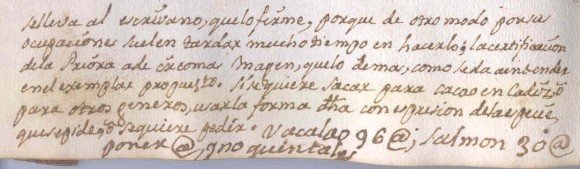 se lleva al escrivano, que lo firme, porque de otro modo por sus
ocupaciones suelen tardar mucho tiempo en hacerlo; la certificacion
de la Priora ade ir como Magen, que lo demas, como se da a entender
en el exemplar propuesto. Si se quiere sacar para cacao en Cadiz o
para otros generos, usar la forma dha con espresion de la especie,
que se pide, o se quiere pedir. Vacalao 96 @; Salmon 30 @
poner @, y no quintales